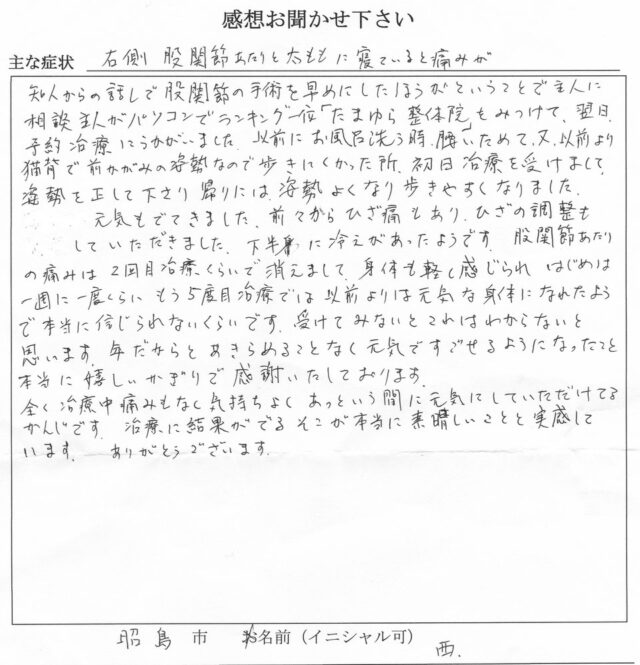 感想お聞かせ下さい
主な症状 右側 股関節あたりと太ももに寝ていると痛みが
知人からの話しで股関節の手術を早めにしたほうがということで主人に
相談 主人がパソコンでランキング一位「たまゆら整体院」をみつけて、翌日、
予約治療にうかがいました。以前にお風呂洗う時、腰いためて、又、以前より
猫背で前かがみの姿勢なので歩きにくかった所、初日治療を受けまして、
姿勢を正して下さり 帰りには 姿勢よくなり歩きやすくなりました。
元気もでてきました。前てからひざ痛もあり、ひざの調整も
していただきました。下半身に冷えがあったようです。股関節あたり
の痛みは2回目治療くらいで消えまして、身体も軽く感じられ はじめは
一週に一度くらい もう5度目治療では以前よりは元気な身体になれたよう
で本当に信じられないくらいです。受けてみないとこれはわからないと
思います。年だからとあきらめることなく元気ですごせるようになったこと
本当に嬉しいかぎりで感謝いたしております。
全く治療中痛みもなく気持ちよくあっという間に元気にしていただけてる
かんじです。治療に結果がでるそこが本当に素晴しいことと実感して
います。 ありがとうございます。
昭島市 お名前(イニシャル可) 西.